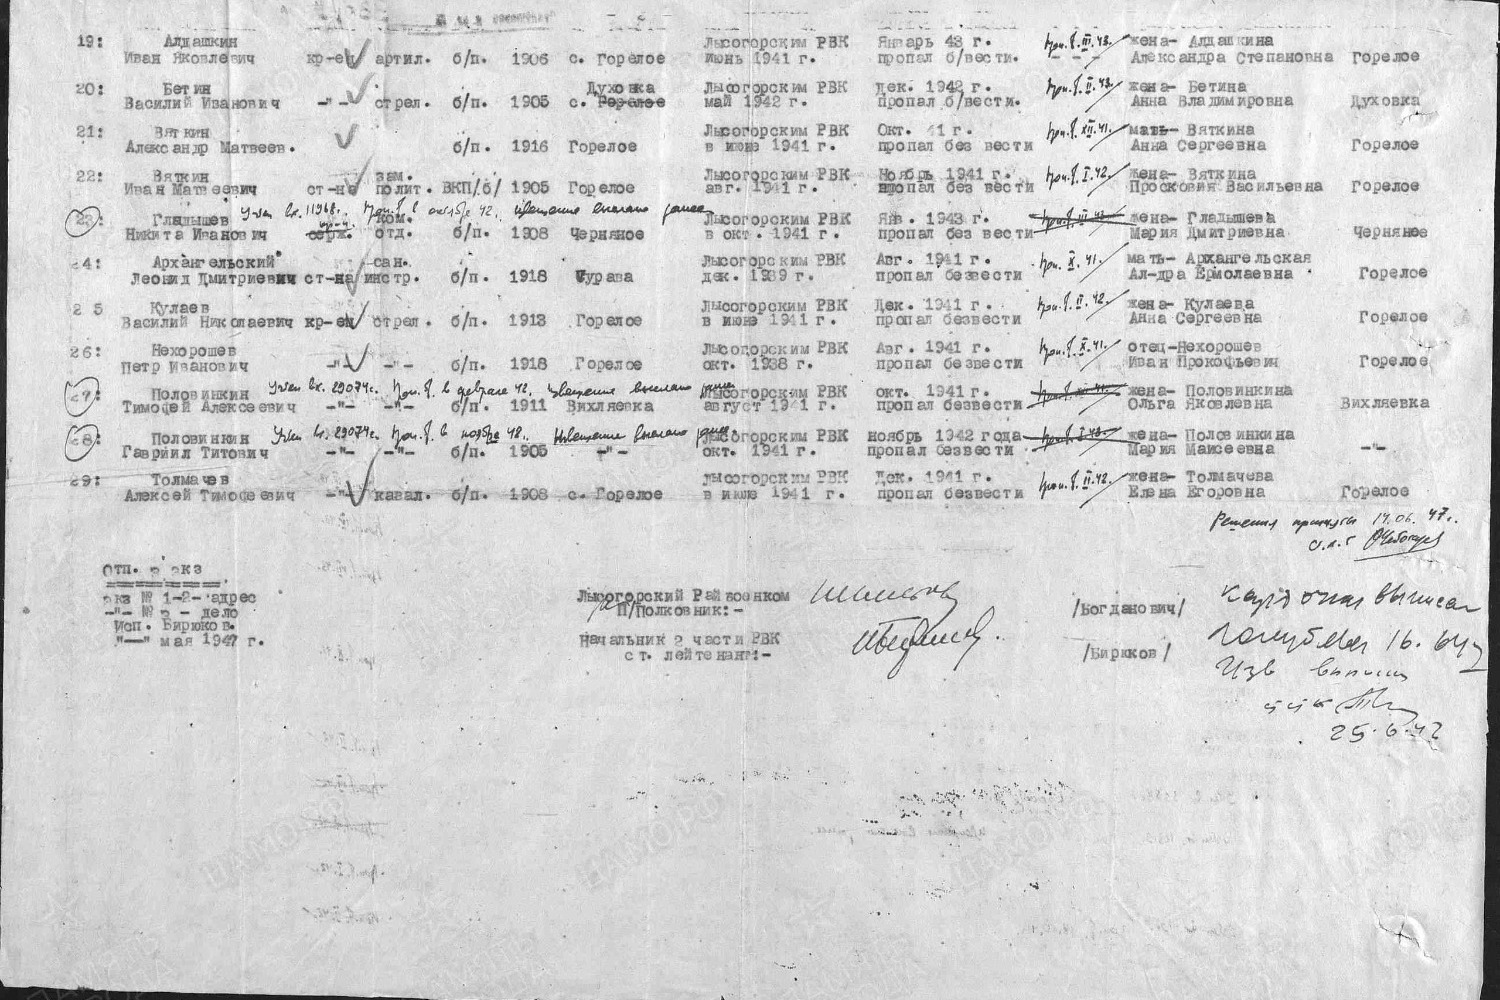 19: Алдашкин Лысогорским РВК Январь 43 г. жена- Алдашкина
Иван Яковлевич кр-ец артил. б/п. 1906 с. Горелое июнь 1941 г. пропал б/вести. Александра Степановна Горелое
20: Бетин Духовка Лысогорским РВК дек. 1942 г. жена- Бетина
Василий Иванович -"- стрел. б/п. 1905 с. Горелое май 1942 г. пропал б/вести. Анна Владимировна Духовка
21: Вяткин Лысогорским РВК Окт. 41 г. мать- Вяткина
Александр Матвеев. б/п. 1916 Горелое в июне 1941 г. пропал без вести Анна Сергеевна Горелое
22: Вяткин зам. Лысогорским РВК Ноябрь 1941 г. жена- Вяткина
Иван Матвеевич ст-на полит. ВКП/б/ 1905 Горелое авг. 1941 г. пропал без вести Просковия Васильевна Горелое
23: Гладышев Учтен вх. 11968г. Проп. б. в октябре 42. извещение выслано ранее ком. Лысогорским РВК Янв. 1943 г. жена- Гладышева
Никита Иванович серж. отд. б/п. 1908 Черняное в окт. 1941 г. пропал без вести Мария Дмитриевна Черняное
24: Архангельский сан. Лысогорским РВК Авг. 1941 г. мать- Архангельская
Леонид Дмитриевич ст-на инстр. б/п. 1918 Сурава дек. 1939 г. пропал безвести Ал-дра Ермолаевна Горелое
25 Кулаев Лысогорским РВК Дек. 1941 г. жена- Кулаева
Василий Николаевич кр-ец стрел. б/п. 1913 Горелое в июне 1941 г. пропал безвести Анна Сергеевна Горелое
26: Нехорошев Лысогорским РВК Авг. 1941 г. отец-Нехорошев
Петр Иванович -"- -"- б/п. 1918 Горелое окт. 1938 г. пропал безвести Иван Прокофьевич Горелое
27: Половинкин Учтен вх. 29074с. Проп. б. в феврале 42. извещение выслано ранее Лысогорским РВК окт. 1941 г. жена- Половинкина
Тимофей Алексеевич -"- -"- б/п. 1911 Вихляевка август 1941 г. пропал безвести Ольга Яковлевна Вихляевка
28: Половинкин Учтен вх. 29074с. Проп. б. в ноябре 42. Извещение выслано ранее Лысогорским РВК ноябрь 1942 года жена- Половинкина
Гавриил Титович -"- -"- б/п. 1905 -"- окт. 1941 г. пропал безвести Мария Маисеевна -"-
29: Толмачев Лысогорским РВК Дек. 1941 г. жена- Толмачева
Алексей Тимофеевич -"- кавал. б/п. 1908 с. Горелое в июле 1941 г. пропал безвести Елена Егоровна Горелое
Решения приняты 14.06. 47г.
отп. 3 экз
экз № 1-2- адрес
-"- № 3 - дело
Исп. Бирюков.
"—" мая 1947 г.
Лысогорский Райвоенком
П/Полковник:- /Богданович/
Начальник 2 части РВК
ст. лейтенант:- /Бирюков/
25.6.47